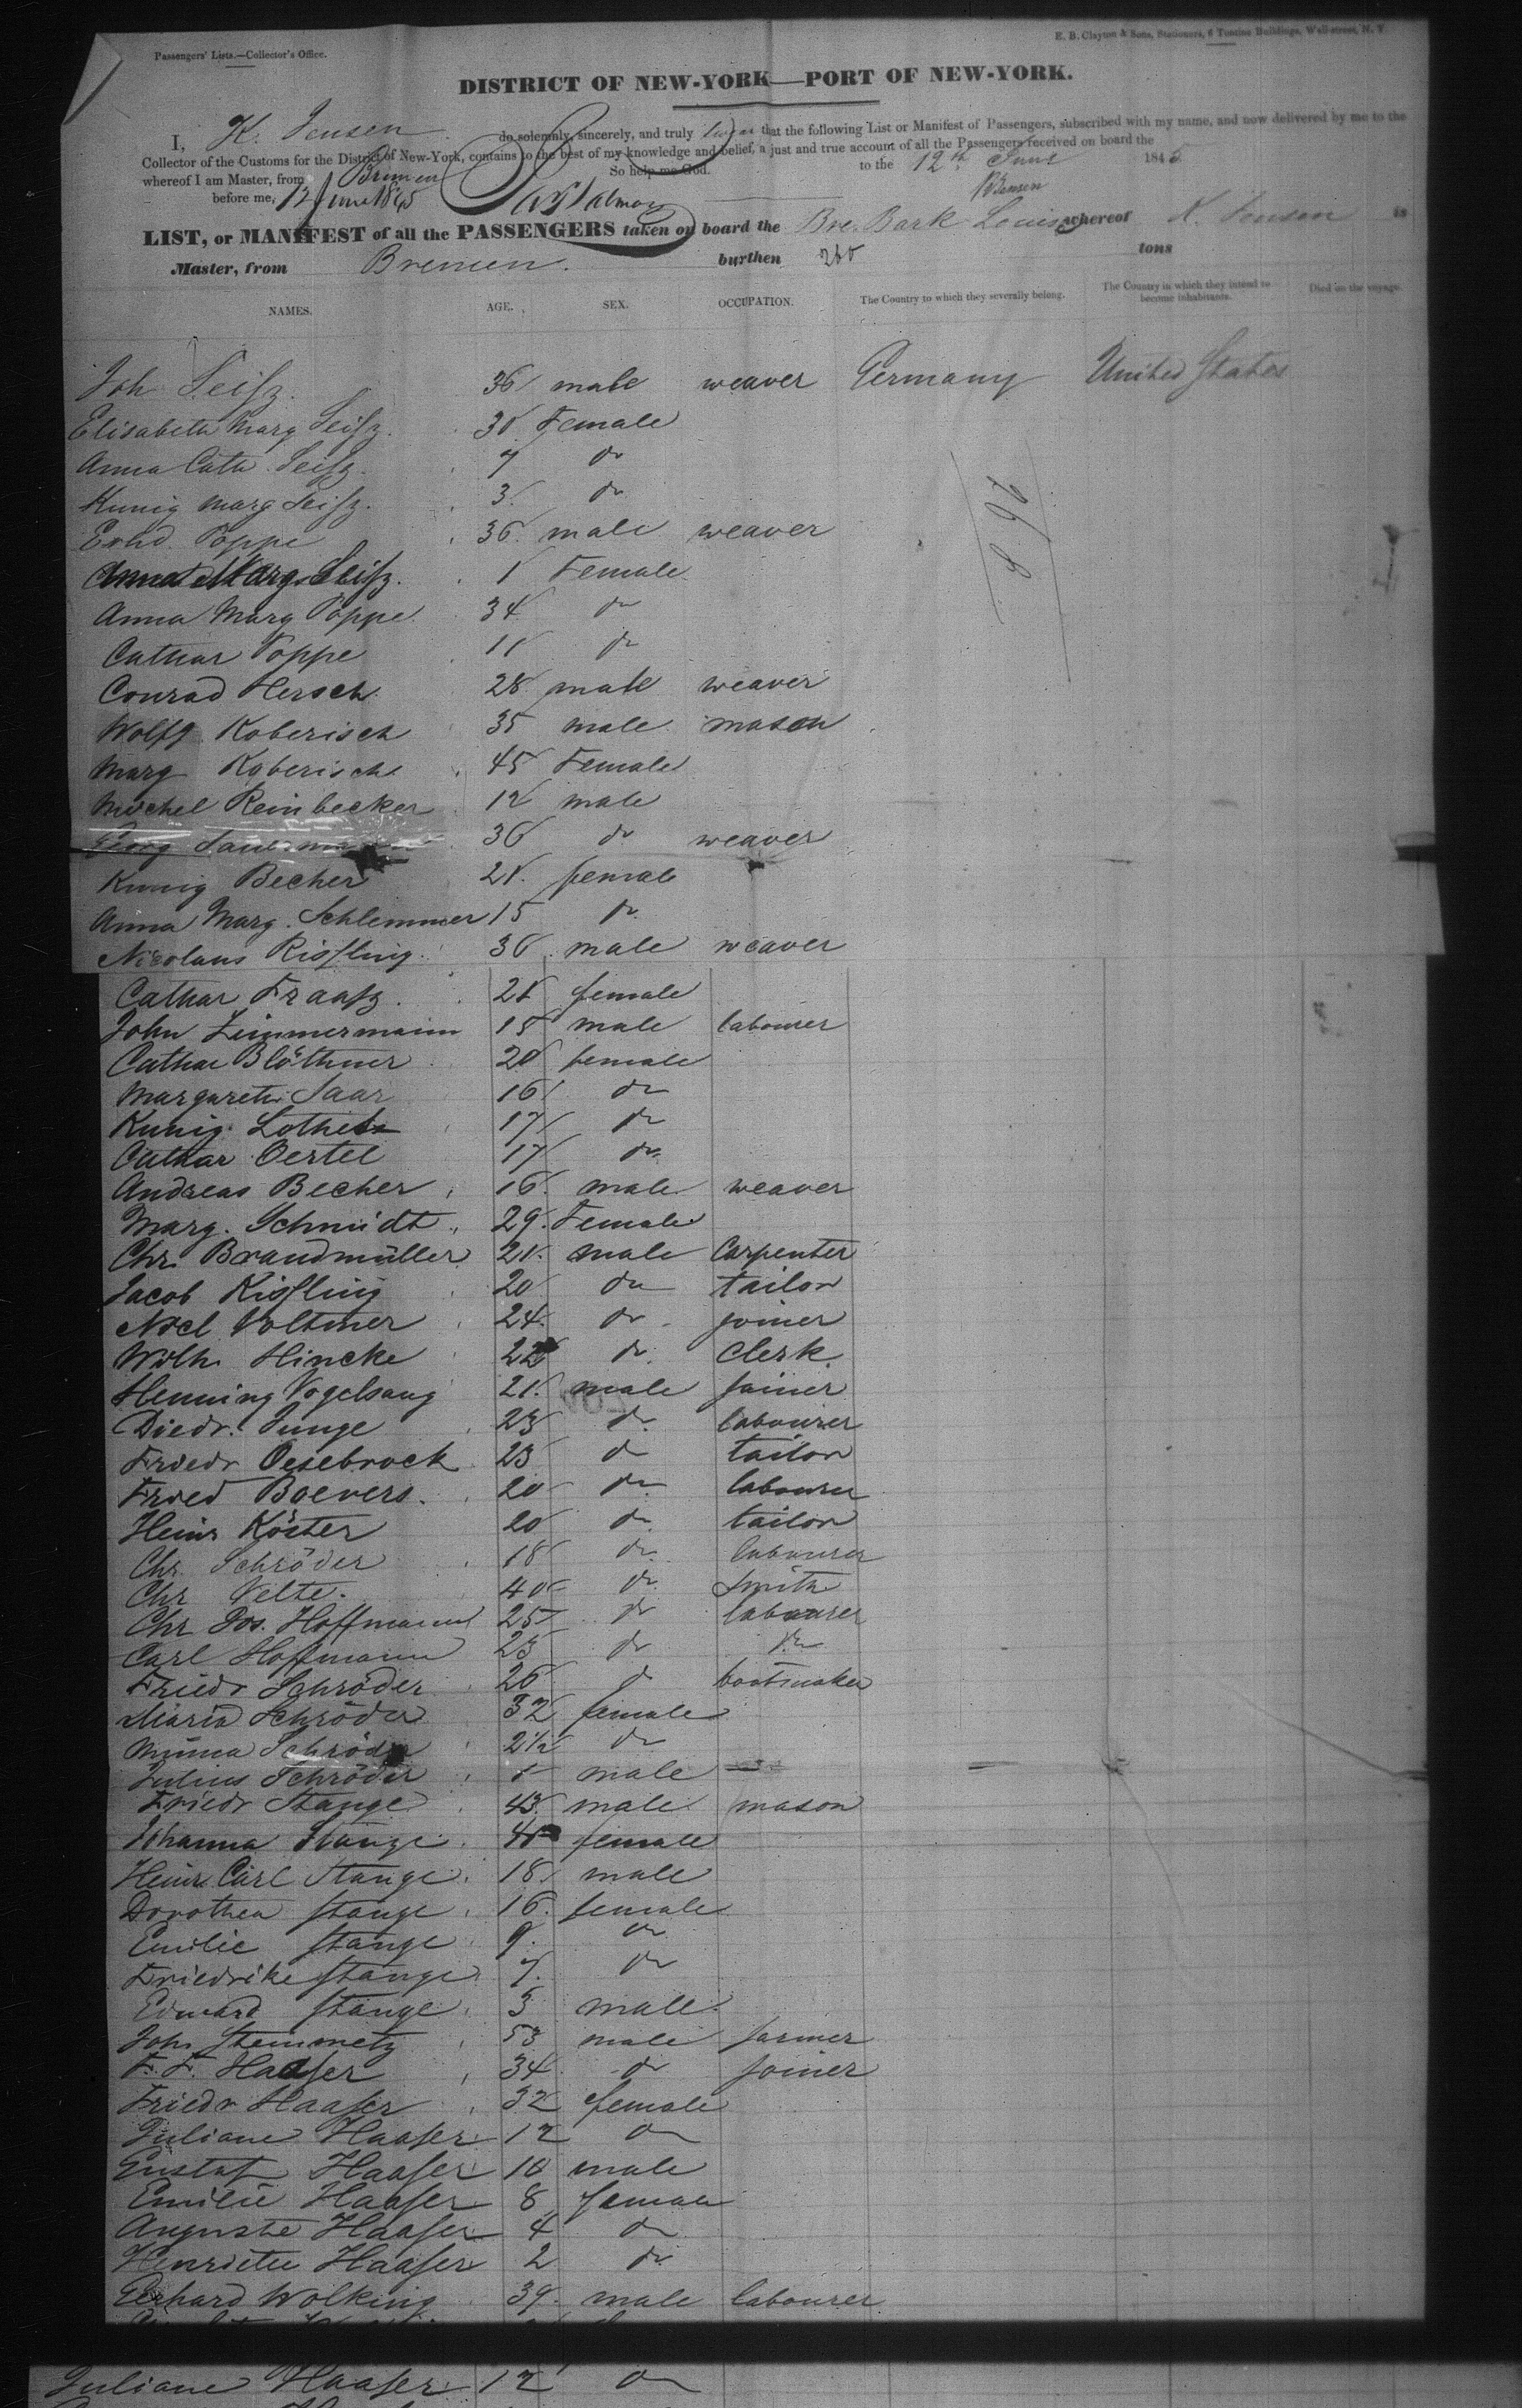 E. B. Clayton & Sons, Stationers, 6 Tontine Buildings, Wall-street, N. Y.
Passengers' Lists.—Collector's Office.
DISTRICT OF NEW-YORK—PORT OF NEW-YORK.
I, K. Jensen do solemnly, sincerely, and truly swear that the following List or Manifest of Passengers, subscribed with my name, and now delivered by me to the
Collector of the Customs for the District of New-York, contains to the best of my knowledge and belief, a just and true account of all the Passengers received on board the
whereof I am Master, from Bremen So help me God.
to the 12th June 1845
before me, 12 June 1845
LIST, or MANIFEST of all the PASSENGERS taken on board the Bre. Bark Louise whereof K. Jensen is
Master, from Bremen. burthen 260 tons
NAMES. AGE. SEX. OCCUPATION. The Country to which they severally belong. The Country in which they intend to become inhabitants. Died on the voyage.
Joh Seifz. 36 male weaver Germany United States
Elisabeth Marg Seifz. 30 Female
Anna Cath. Seifz. 7 do
Kunig Marg Seifz. 3 do
Erhd. Poppe 36 male weaver
Anna Marg Seifz. 1 Female
Anna Marg Poppe 34 do
Cathar Poppe 11 do
Conrad Hersch 28 male weaver
Wolfg. Koberisch 35 male mason
Marg Koberisch 45 Female
Michel Reinbecker 12 male
Georg Sauermann 36 do weaver
Kunig Becher 21 female
Anna Marg. Schlemmer 15 do
Nicolaus Rissling 36 male weaver
Cathar Fraafz. 21 female
John Zimmermann 15 male labourer
Cathar Blöthner 20 female
Margareth Saar 16 do
Kunig. 17 do
Cathar Oertel 17 do
Andreas Becher 16 male weaver
Marg. Schmidt 29 Female
Chr. Brandmüller 21 male Carpenter
Jacob Kissling 20 do tailor
Nicl Voltmer 24 do joiner
Wilh. Hincke 22 do Clerk
Henning Vogelsang 21 male joiner
Diedr. Junge 23 do labourer
Friedr Oesebrock 23 do tailor
Fried Boevers. 20 do labourer
Heinr Köster 20 do tailor
Chr. Schröder 18 do labourer
Chr Velte. 40 do smith
Chr Jos. Hoffmann 25 do labourer
Carl Hoffmann 23 do do
Friedr Schröder 26 do bootmaker
Maria Schröder 32 female
Minna Schröder 2½ do
Julius Schröder male
Friedr Stange 43 male mason
Johanna Stange female
Heinr. Carl Stange 18 male
Dorothea Stange 16 female
Emilie Stange 9 do
Friedrike Stange 7 do
Edward Stange 3 male
Joh. Steinmetz 53 male farmer
F. F. Haaser 34 do joiner
Friedr Haaser 32 female
Juliane Haaser 12 do
Gustaf Haaser 10 male
Emilie Haaser 8 female
Auguste Haaser 4 do
Henriette Haaser 2 do
Gerhard Wolking 39 male labourer
Juliane Haaser 12 do